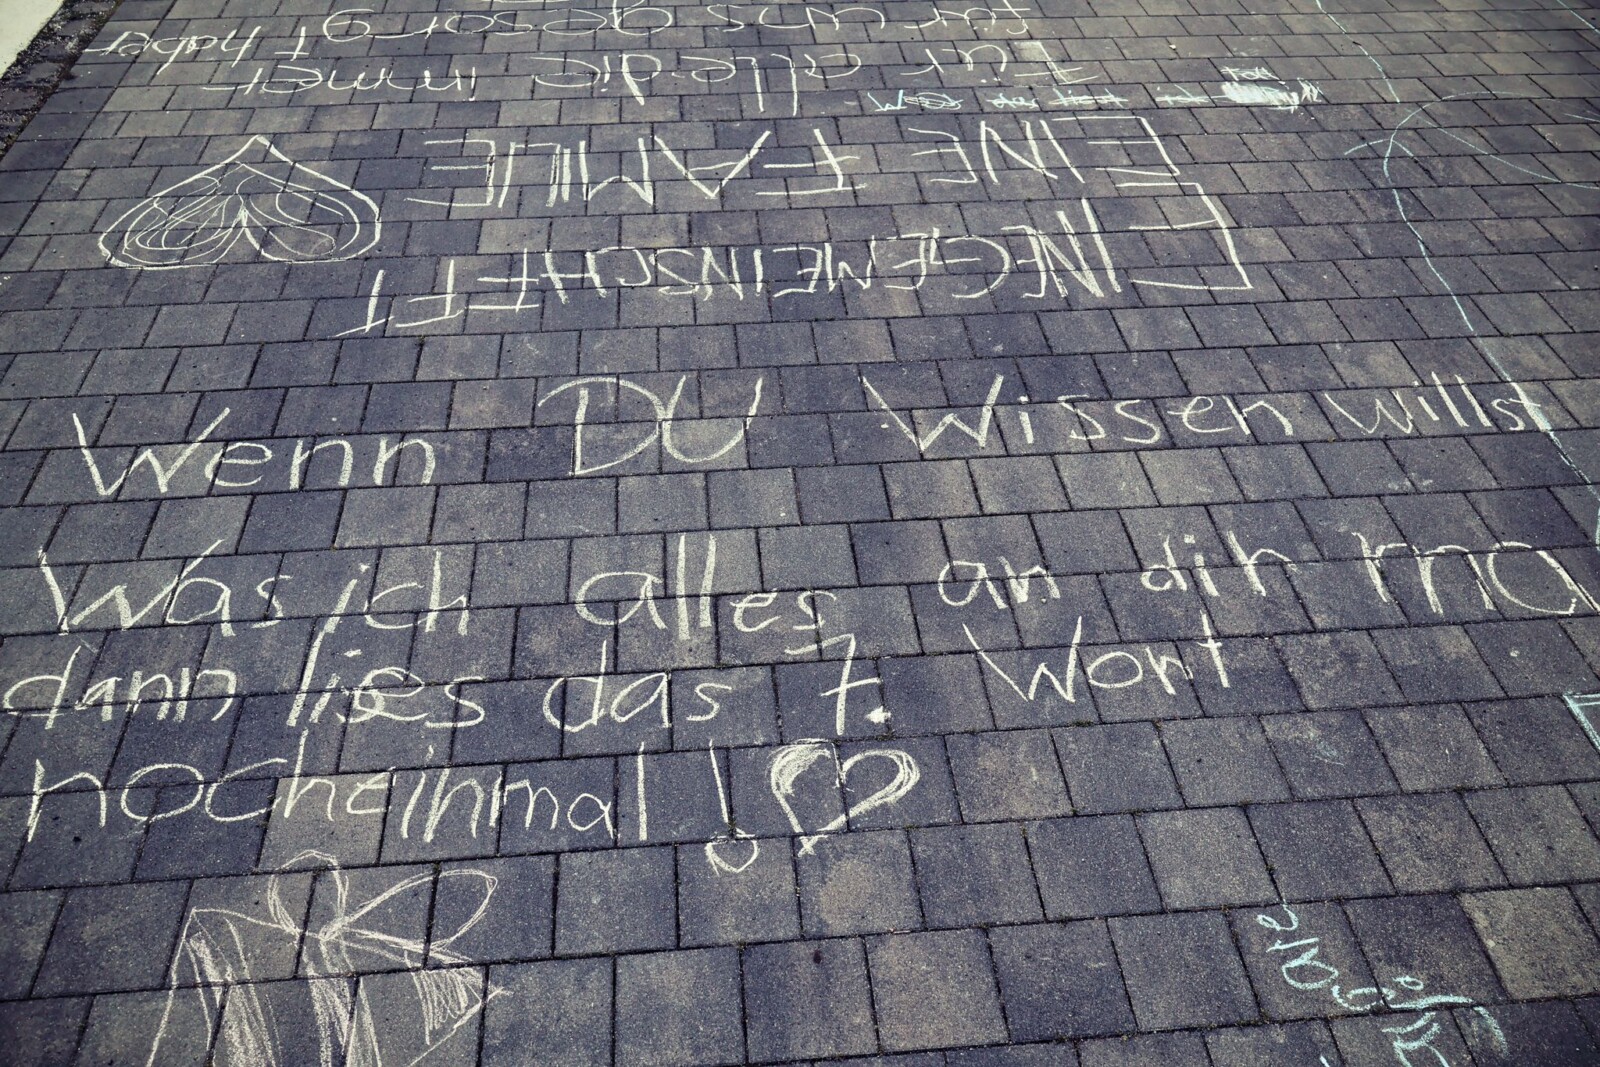 Wenn DU Wissen willst
Was ich alles an dih ma
dann lies das 7. Wort
nocheinmal!
EINEGEMEINSCHFTFT
EINE FAMILIE
Für alle die immer
für uns gesorgt haben